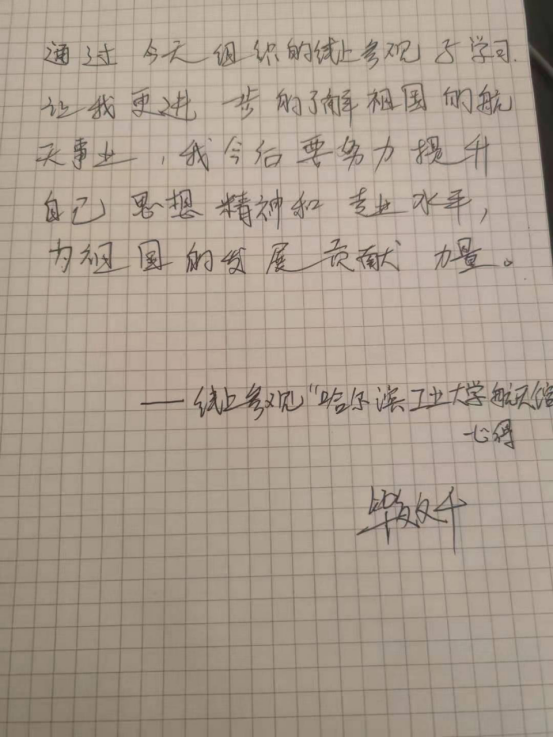 通过今天组织的线上参观与学习.
让我更进一步的了解祖国的航
天事业，我今后要努力提升
自己思想精神和专业水平，
为祖国的发展贡献力量。
——线上参观“哈尔滨工业大学航天馆
心得